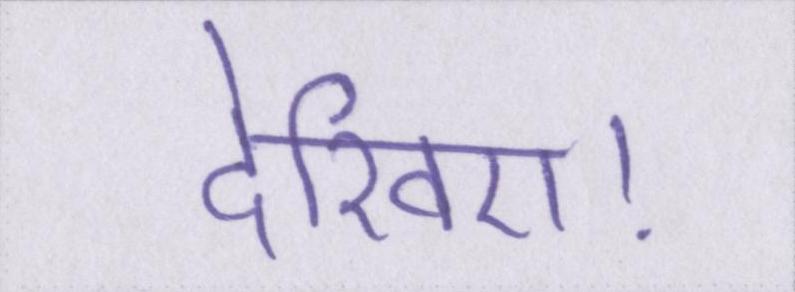 देखिए!